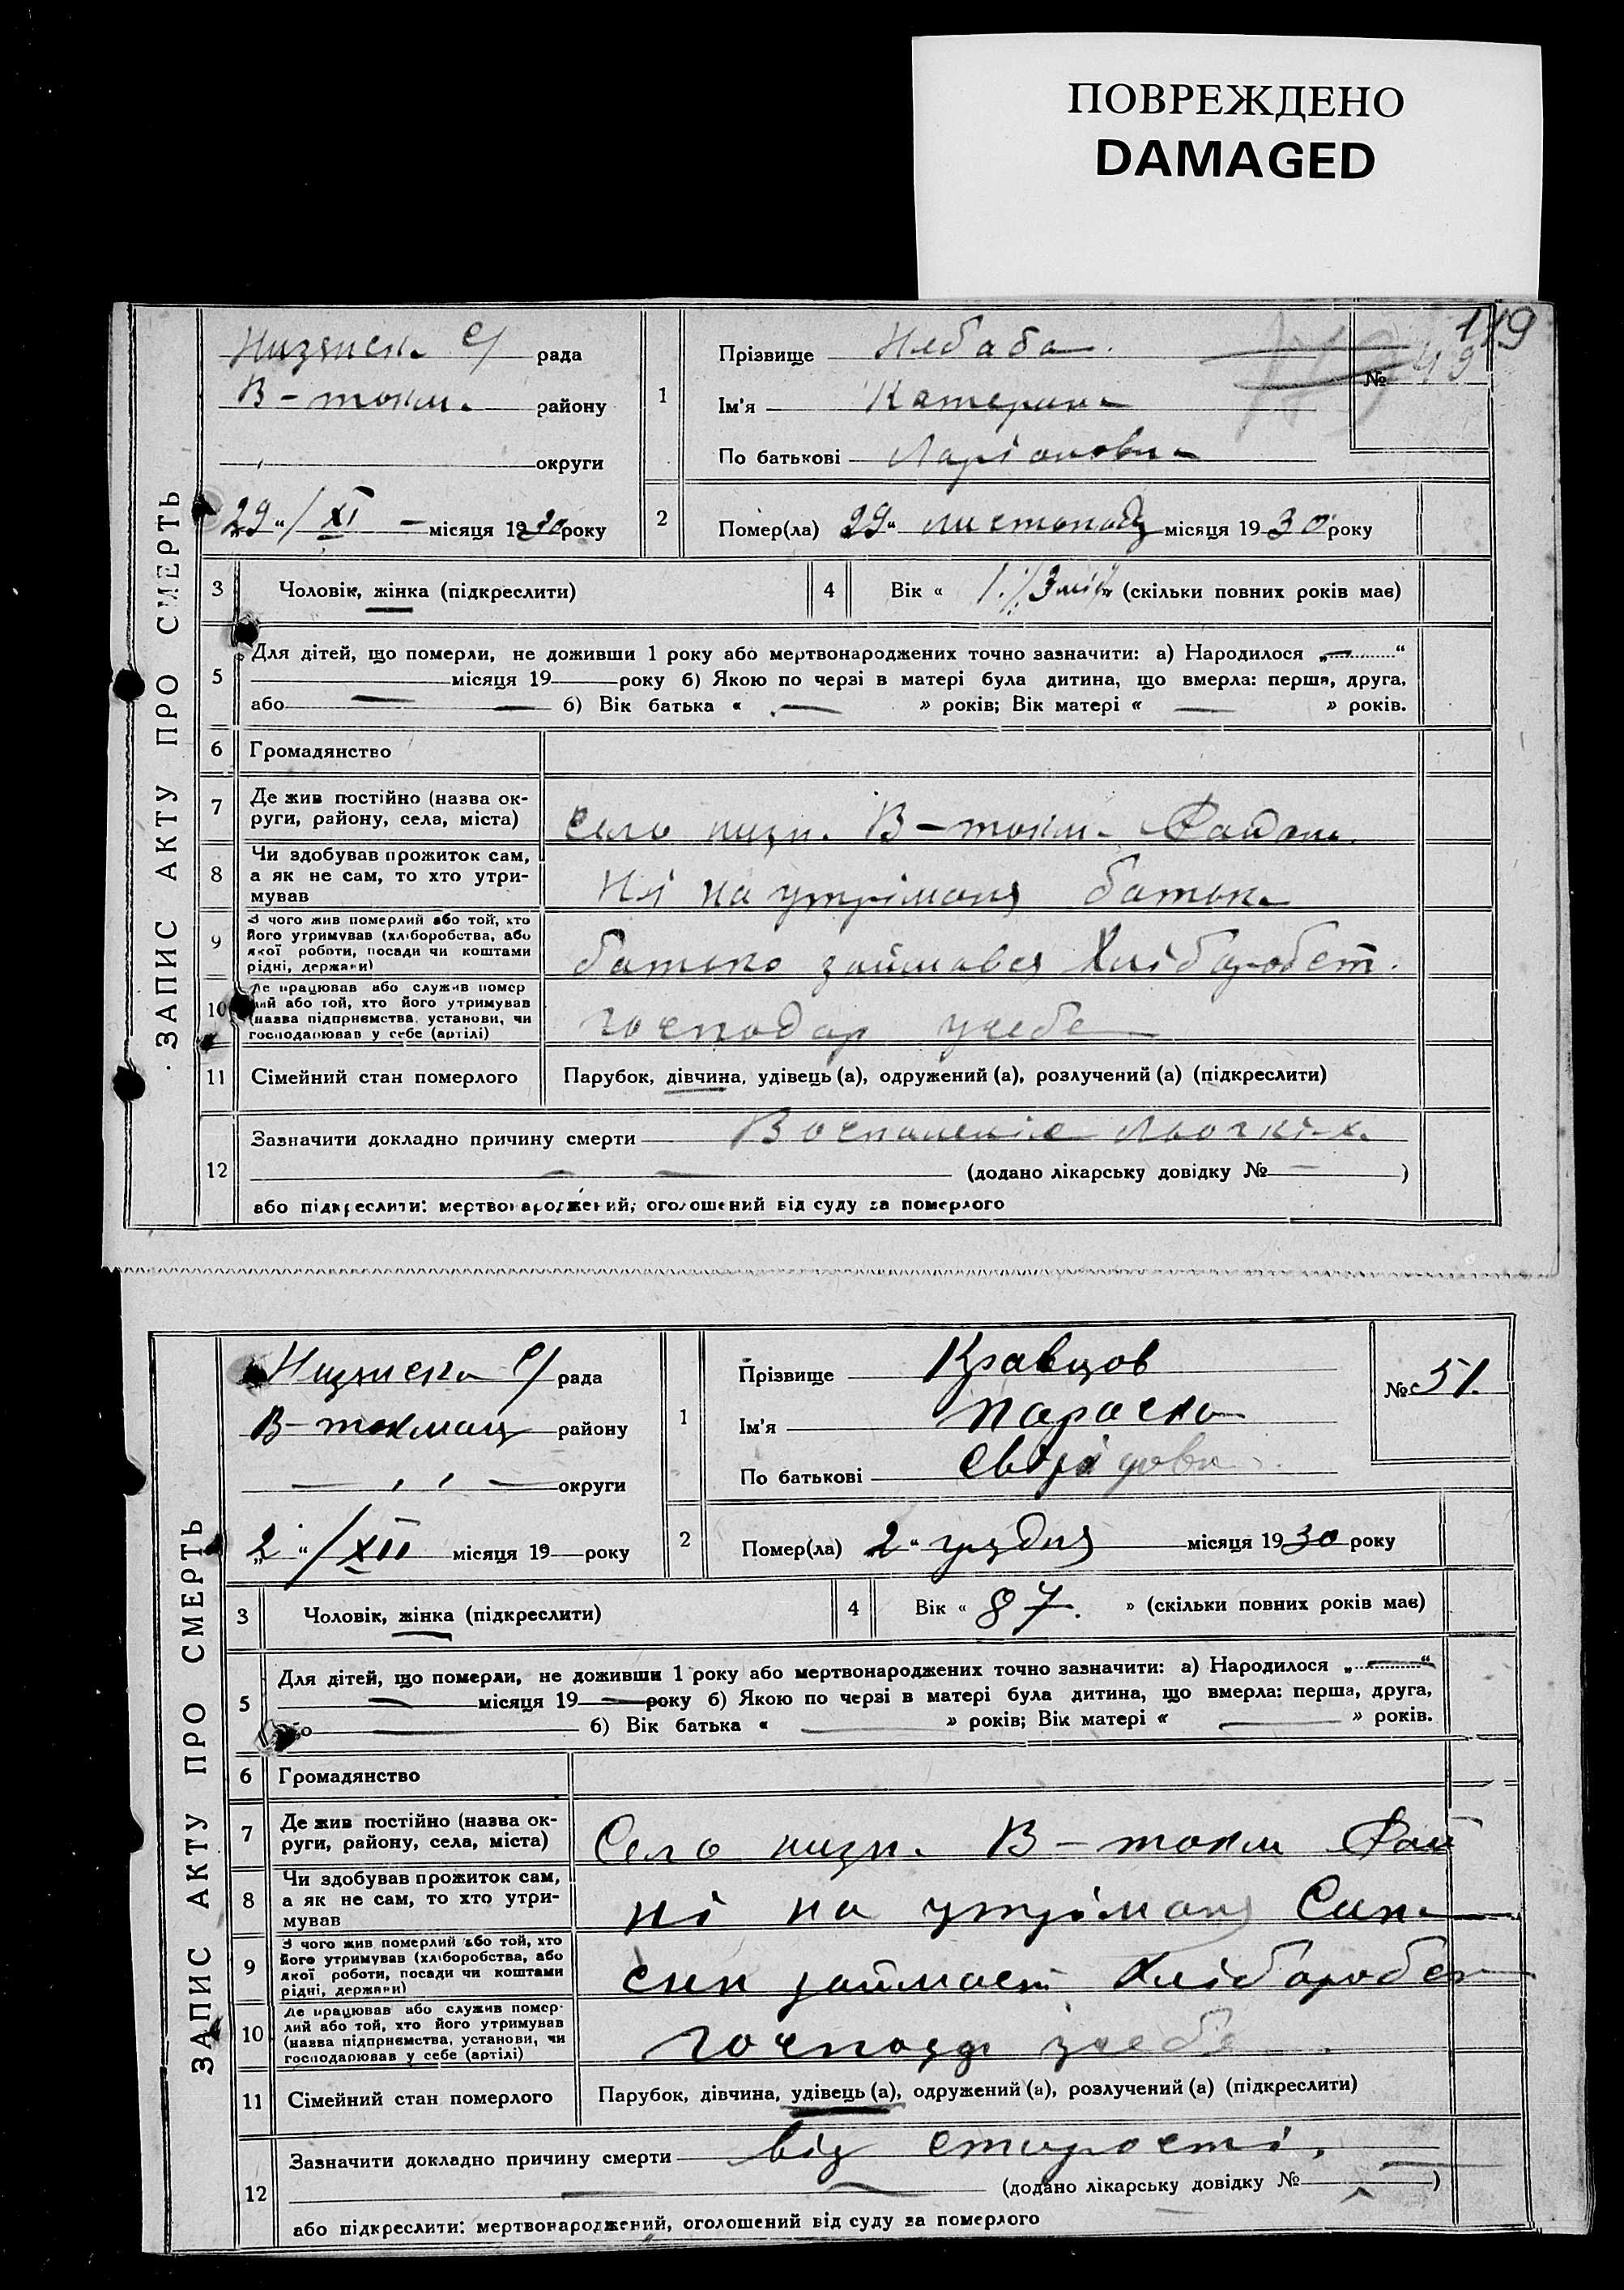 ПОВРЕЖДЕНО
DAMAGED
119
ЗАПИС АКТУ ПРО СМЕРТЬ
Низянска с/ рада
В-токм. району
округи
29 "/ XI місяця 1930 року
1
Прізвище Небаба.
Ім'я Катерина
По батькові Ларіоновна
№ 49
2
Помер(ла) 29 " листопада місяця 1930 року
3 Чоловік, жінка (підкреслити)
4 Вік « 1./3 (скільки повних років має)
5 Для дітей, що померли, не доживши 1 року або мертвонароджених точно зазначити: а) Народилося „ — “
місяця 19 року б) Якою по черзі в матері була дитина, що вмерла: перша, друга,
або — — б) Вік батька « — » років; Вік матері « — » років.
6 Громадянство
7 Де жив постійно (назва округи, району, села, міста) село низн. В-токм. Район
8 Чи здобував прожиток сам,
а як не сам, то хто утри-
мував
Ні на утріманя батька
9 З чого жив померлий або той, хто
його утримував (хліборобства, або
якої роботи, посади чи коштами
рідні, держави)
батько займався Хліборобст.
10 Де працював або служив помер
лий або той, хто його утримував
(назва підприємства, установи, чи
господарював у себе (артілі)
господар усебе
11 Сімейний стан померлого Парубок, дівчина, удівець (а), одружений (а), розлучений (а) (підкреслити)
12 Зазначити докладно причину смерти Воспаленіе Льогкіх.
— — (додано лікарську довідку № — )
або підкреслити: мертвонароджений, оголошений від суду за померлого
ЗАПИС АКТУ ПРО СМЕРТЬ
Низянска с/ рада
В-токмац району
округи
„2 "/ XII місяця 19 — року
1
Прізвище Кравцов
Ім'я Параска
По батькові Свірідовна
№ 51.
2
Помер(ла) 2 " грудня місяця 1930 року
3 Чоловік, жінка (підкреслити)
4 Вік « 87. » (скільки повних років має)
5 Для дітей, що померли, не доживши 1 року або мертвонароджених точно зазначити: а) Народилося „ — “
— місяця 19 — року б) Якою по черзі в матері була дитина, що вмерла: перша, друга,
або — б) Вік батька « — » років; Вік матері « — » років.
6 Громадянство
7 Де жив постійно (назва ок-
руги, району, села, міста)
Село низн. В-токм Рай
8 Чи здобував прожиток сам,
а як не сам, то хто утри-
мував
ні на утріманя Сина
9 З чого жив померлий або той, хто
його утримував (хліборобства, або
якої роботи, посади чи коштами
рідні, держави)
син займаєт Хліборобст
10 Де працював або служив помер-
лий або той, хто його утримував
(назва підприємства, установи, чи
господарював у себе (артілі)
господар усебе
11 Сімейний стан померлого Парубок, дівчина, удівець (а), одружений (а), розлучений (а) (підкреслити)
12 Зазначити докладно причину смерти від старості.
— (додано лікарську довідку № — )
або підкреслити: мертвонароджений, оголошений від суду за померлого